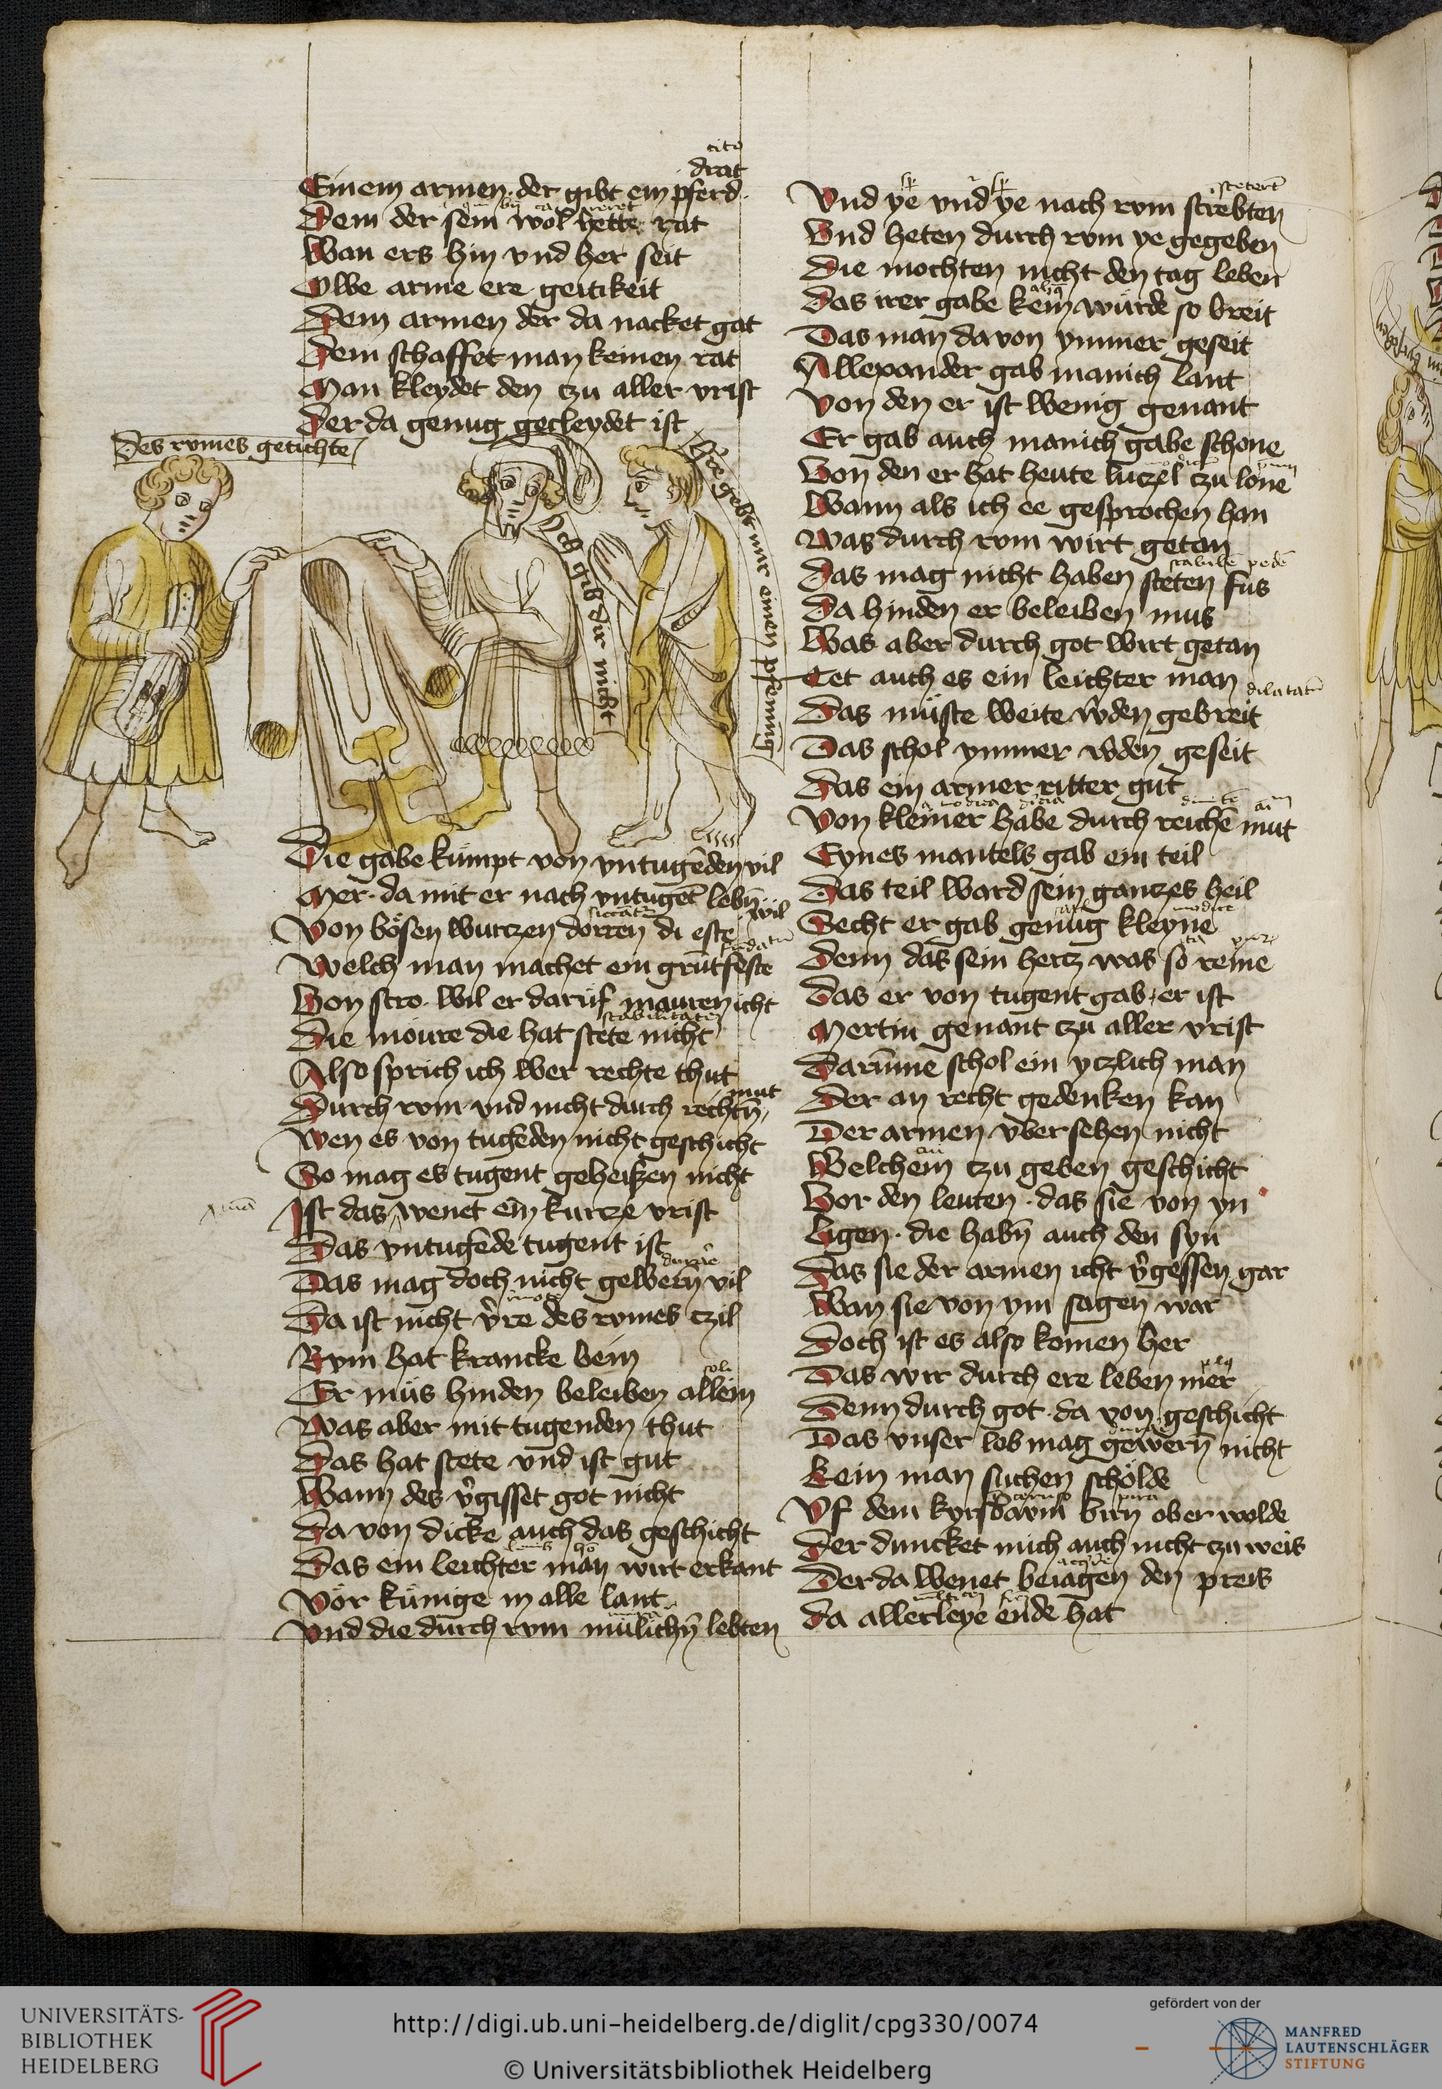 drat
Einem armen der gibt ein pferd
Dem der sein wol hette rat
Wan ers hin vnd her seit
Owe arme ere geitikeit
Dem armen der da nacket gat
Dem schaffet man keinen rat
Man kleydet den czu aller vrist
Der da genug gecleydet ist
Des rvmes getichte
Ich gib dir nicht
gebt mir einen pfennig
Die gabe kümpt von vntugēden vil
Mer da mit er nach vntugēt lebn̄ wil
Von bösen wurczen dorren di este
Welch man machet ein gruntfeste
Von stro wil er daruf mauren icht
Die moure die hat stete nicht
Also sprich ich wer rechte thut
Durch rvm vnd nicht durch rechtn̄ mut
Wen es von tugēden nicht geschicht
So mag es tugent geheißen nicht
Ist das wenet ein kurcze vrist
Das vntugēde tugent ist
Das mag doch nicht gewern̄ vil
Da ist nicht v̄re des rvmes czil
Rvm hat krancke bein
Er mus hinden beleiben allein
Was aber mit tugenden thut
Das hat stete vnd ist gut
Wann des v̄gisset got nicht
Da von dicke auch das geschicht
Das ein leichter man wirt erkant
Vör künige in alle lant
Vnd die durch rvm mulichn̄ lebten
Vnd ye vnd ye nach rvm strebten
Vnd heten durch rvm ye gegeben
Die mochten nicht den tag leben
Das irer gabe kein würde so breit
Das man da von ymmer geseit
Allexander gab manich lant
Von den er ist wenig genant
Er gab auch manich gabe schone
Von den er hat heute luczel czu lone
Wann als ich ee gesprochen han
Was durch rvm wirt getan
Das mag nicht haben steten fus
Da hinden er beleiben mus
Was aber durch got wirt getan
Tet auch es ein leichter man
Das müste weite w̄den gebreit
Das schol ymmer w̄den geseit
Das ein armer ritter gut
Von kleiner habe durch reichē mut
Eynes mantels gab ein teil
Das teil ward sein ganczes heil
Secht er gab genug kleyne
Denn das sein hercz was so reine
Das er von tugent gab er ist
Mertin genant czu aller vrist
Darūme schol ein yczlich man
Der an recht gedenken kan
Der armen vber sehen nicht
Welchem czu geben geschicht
Vor den leuten das sie von yn
ligen die habn̄ auch den syn
Das sie der armen icht v̄gessen gar
Wan sie von ym sagen war
Doch ist es also komen her
Das wir durch ere leben mer
Denn durch got da von geschicht
Das vnser lob mag gewern̄ nicht
Kein man suchen schölde
Vf dem kyrsbavm birn ober wolde
Der duncket mich auch nicht czu weis
Der da wenet beiagen den preis
Da allerleye ende hat
UNIVERSITÄTS-
BIBLIOTHEK
HEIDELBERG
http://digi.ub.uni-heidelberg.de/diglit/cpg330/0074
© Universitätsbibliothek Heidelberg
gefördert von der
MANFRED
LAUTENSCHLÄGER
STIFTUNG